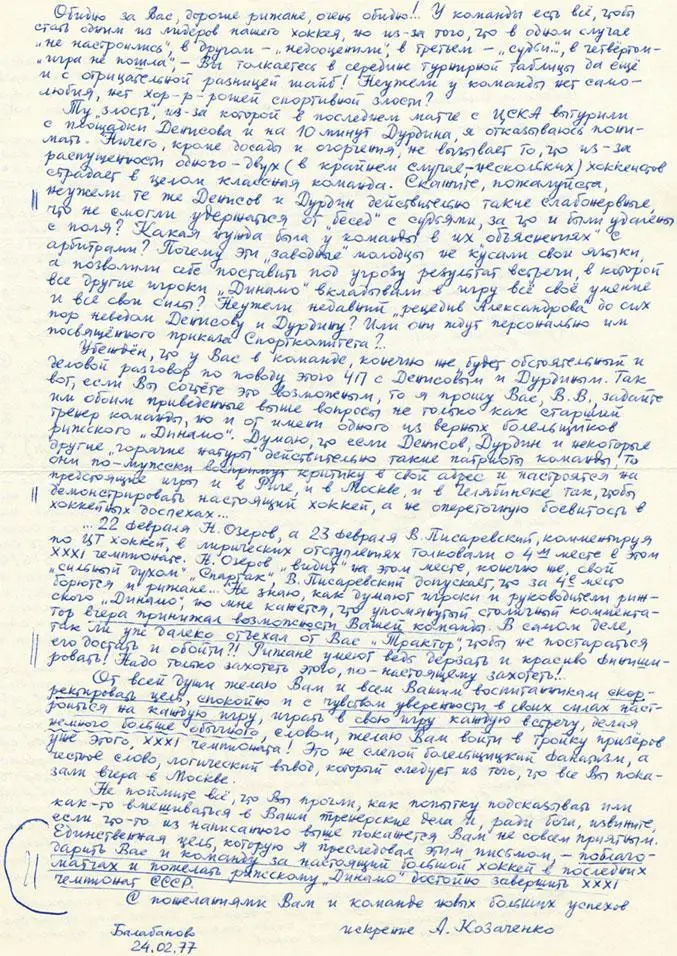 Обидно за Вас, дорогие рижане, очень обидно!.. У команды есть всё, чтобы
стать одним из лидеров нашего хоккея, но из-за того, что в одном случае
"не настроились", в другом – "недооценили", в третьем – "судьи..", в четвёртом–
"игра не пошла", – Вы толкаетесь в середине турнирной таблицы да ещё
и с отрицательной разницей шайб! Неужели у команды нет само-
любия, нет хор-р-рошей спортивной злости?
Ту "злость", из-за которой в последнем матче с ЦСКА вытурили
с площадки Денисова и на 10 минут Дурдина, я отказываюсь пони-
мать. Ничего, кроме досады и огорчения, не вызывает то, что из-за
распущенности одного-двух (в крайнем случае-нескольких) хоккеистов
страдает в целом классная команда. Скажите, пожалуйста,
неужели те же Денисов и Дурдин действительно такие слабонервные,
что не смогли удержаться от "бесед" с судьями, за что и были удалены
с поля? Какая нужда была у команды в их "объяснениях" с
арбитрами? Почему эти "заводные" молодцы не кусали свои языки,
а позволили себе поставить под угрозу результат встречи, в которой
все другие игроки "Динамо" вкладывали в игру всё своё умение
и все свои силы? Неужели недавний "рецедив Александрова" до сих
пор неведом Денисову и Дурдину? Или они ждут персонально им
посвящённого приказа Спорткомитета?..
Убеждён, что у Вас в команде, конечно же, будет обстоятельный и
деловой разговор по поводу этого ЧП с Денисовым и Дурдиным. Так
вот, если Вы сочтёте это возможным, то я прошу Вас, В.В., задайте
им обоим приведенные выше вопросы не только как старший
тренер команды, но и от имени одного из верных болельщиков
рижского "Динамо". Думаю, что если Денисов, Дурдин и некоторые
другие "горячие натуры" действительно такие патриоты команды, то
они по-мужски воспримут критику в свой адрес и настроятся на
предстоящие игры и в Риге, и в Москве, и в Челябинске так, чтобы
демонстрировать настоящий хоккей, а не опереточную боевитость в
хоккейных доспехах...
... 22 февраля Н. Озеров, а 23 февраля В. Писаревский, комментируя
по ЦТ хоккей, в лирических отступлениях толковали о 4-м месте в этом
XXXI чемпионате. Н. Озеров "видит" на этом месте, конечно же, свой
"сильный духом" "Спартак". В. Писаревский допускает, что за 4-е место
борются и рижане... Не знаю, как думают игроки и руководители риж-
ского "Динамо", но мне кажется, что упомянутый столичный коммента-
тор вчера принижал возможности Вашей команды. В самом деле,
так ли уж далеко отъехал от Вас "Трактор", чтобы не постараться
его достать и обойти?! Рижане умеют ведь дерзать и красиво финиши-
ровать! Надо только захотеть этого, по-настоящему захотеть!..
От всей души желаю Вам и всем Вашим воспитанникам скор-
ректировать цель, спокойно и с чувством уверенности в своих силах наст-
роиться на каждую игру, играть в свою игру каждую встречу, делая
немного больше обычного, словом, желаю Вам войти в тройку призёров
уже этого, XXXI чемпионата! Это не слепой болельщицкий фанатизм, а
честное слово, логический вывод, который следует из того, что все Вы пока-
зали вчера в Москве.
Не поймите всё, что Вы прочли, как попытку подсказывать или
как-то вмешиваться в Ваши тренерские дела и, ради бога, извините,
если что-то из написанного выше покажется Вам не совсем приятным.
Единственная цель, которую я преследовал этим письмом, – поблаго-
дарить Вас и команду за настоящий большой хоккей в последних
матчах и пожелать рижскому "Динамо" достойно завершить XXXI
чемпионат СССР.
С пожеланиями Вам и команде новых больших успехов
искренне А. Козаченко
Балабаново
24.02.77